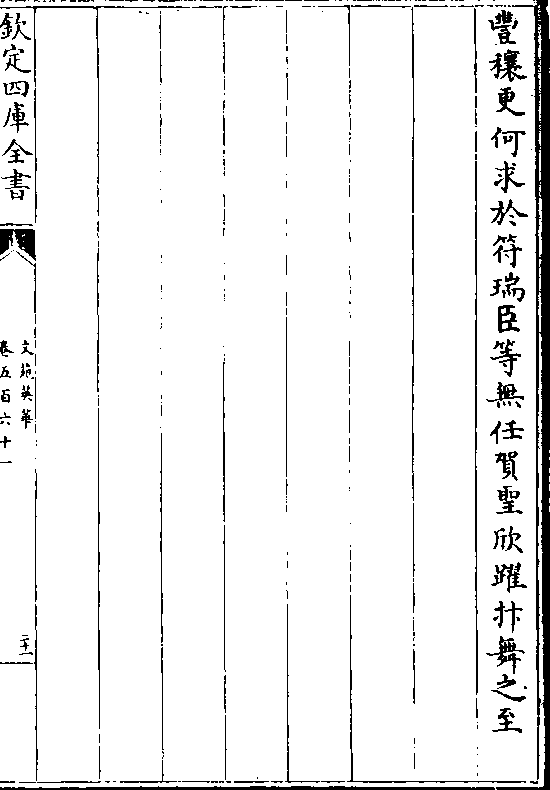 豐穰更何求於符瑞臣等無任賀聖欣躍抃舞之至
欽定四庫全書
文苑英華
卷五百六十一
二十一